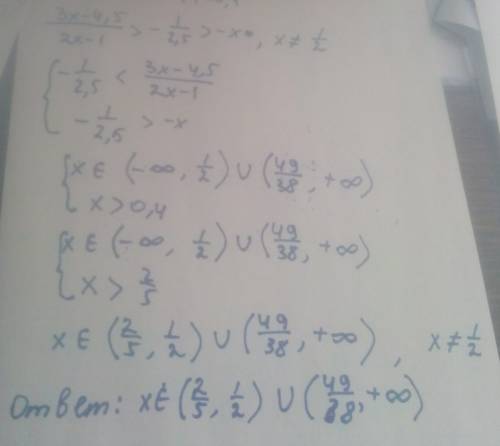 (3x-4,5)/(2x-1) > -1/2,5 > -x, x ≠ 1/2
{ -1/2,5 < (3x-4,5)/(2x-1)
-1/2,5 > -x
{ x ∈ (-∞, 1/2) ∪ (49/38; +∞)
x > 0,4
{ x ∈ (-∞, 1/2) ∪ (49/38, +∞)
x > 2/5
x ∈ (2/5, 1/2) ∪ (49/38, +∞), x ≠ 1/2
Ответ: x ∈ (2/5, 1/2) ∪ (49/38, +∞)